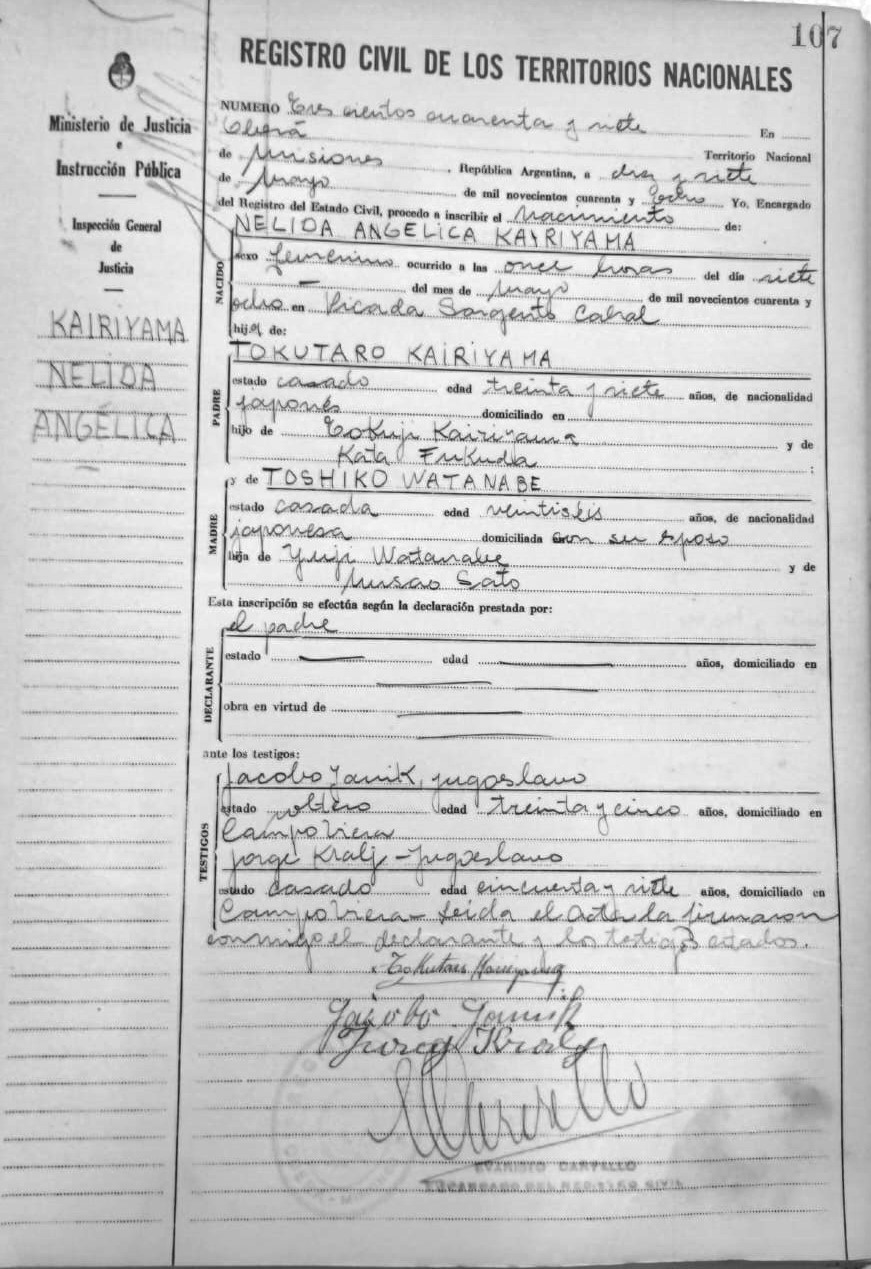 107
REGISTRO CIVIL DE LOS TERRITORIOS NACIONALES
Ministerio de Justicia
e
Instrucción Pública
Inspección General
de
Justicia
KAIRIYAMA
NELIDA
ANGÉLICA
NUMERO Trescientos cuarenta y siete En
Oberá Territorio Nacional
de Misiones, República Argentina, a diez y siete
de Mayo de mil novecientos cuarenta y ocho Yo, Encargado
del Registro del Estado Civil, procedo a inscribir el Nacimiento de:
NACIDO
NELIDA ANGELICA KAIRIYAMA
sexo femenino ocurrido a las once horas del día siete
del mes de mayo de mil novecientos cuarenta y
ocho en Picada Sargento Cabral
hija de:
PADRE
TOKUTARO KAIRIYAMA
estado casado edad treinta y siete años, de nacionalidad
japonés domiciliado en
hijo de Tokuji Kairiyama y de
Kata Fukuda :
MADRE
y de TOSHIKO WATANABE
estado casada edad veintiseis años, de nacionalidad
japonesa domiciliada con su esposo
hija de Yuji Watanabe y de
Misao Sato
Esta inscripción se efectúa según la declaración prestada por:
DECLARANTE
el padre
estado edad años, domiciliado en
obra en virtud de
ante los testigos:
TESTIGOS
Jacobo Janik, jugoslavo
estado soltero edad treinta y cinco años, domiciliado en
Campo Viera
Jorge Kralj - Jugoeslavo
estado casado edad cincuenta y siete años, domiciliado en
Campo Viera - Leida el Acta la firmaron
conmigo el declarante y los testigos citados.
Tokutaro Kairiyama
Jacobo Janik
Juraj Kralj
EVARISTO CARVELLO
ENCARGADO DEL REGISTRO CIVIL